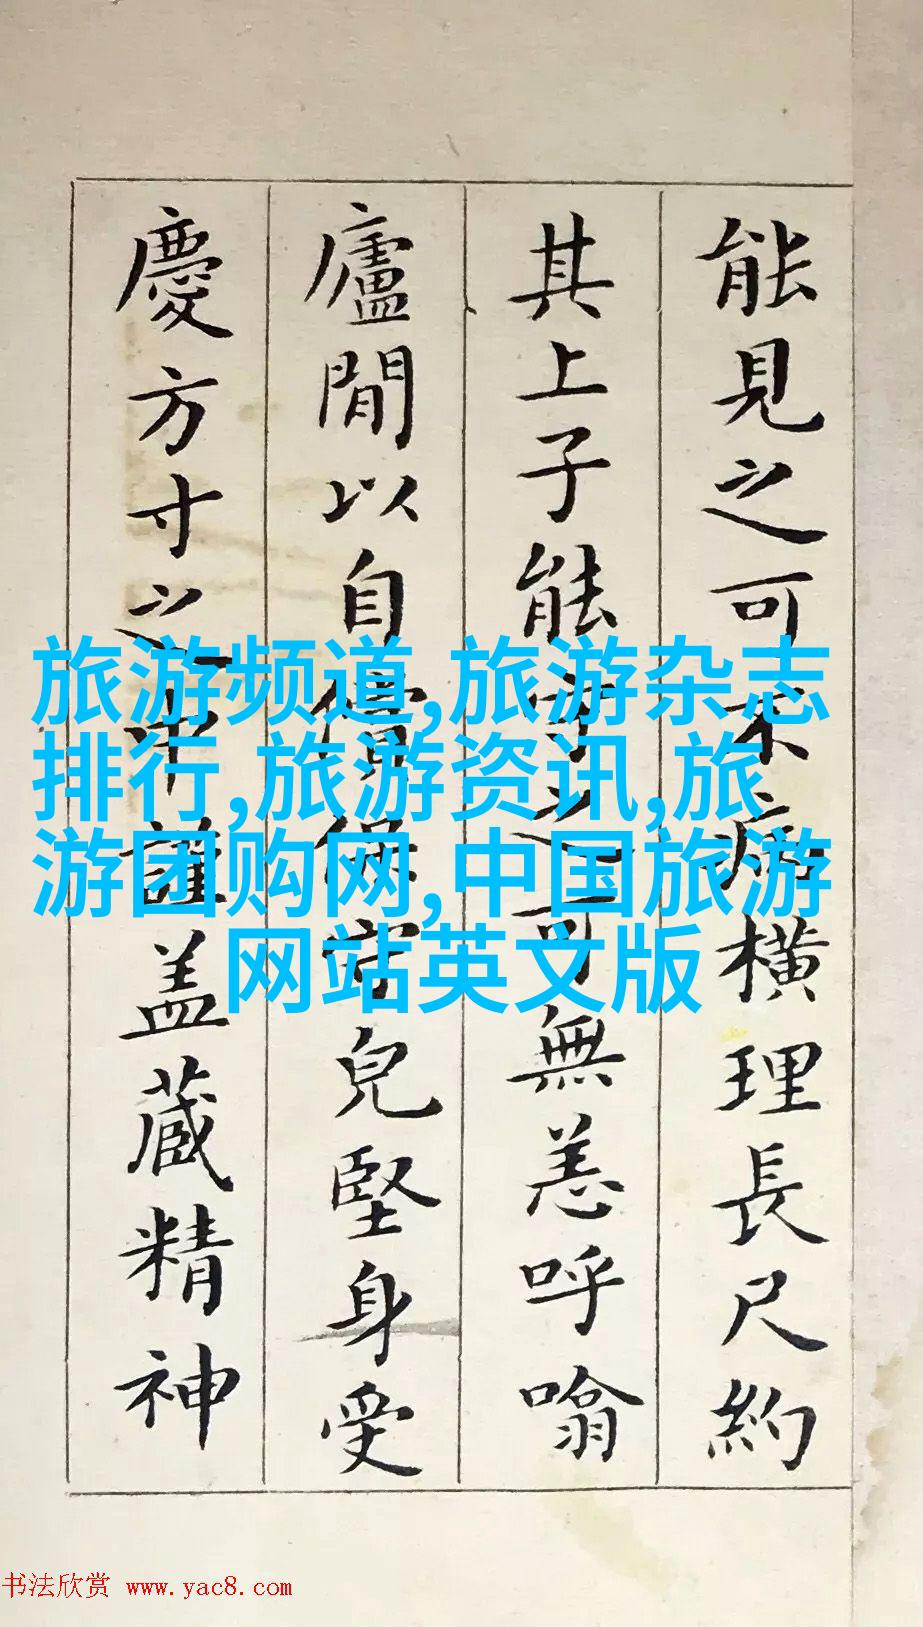 能見之可不病橫理長尺約
其上子能守之可無恙呼噏
廬間以自償保守兒堅身受
慶方寸之中謹盖藏精神
旅游频道,旅游杂志
排行,旅游资讯,旅
游团购网,中国旅游
网站英文版
书法欣赏 www.yac8.com